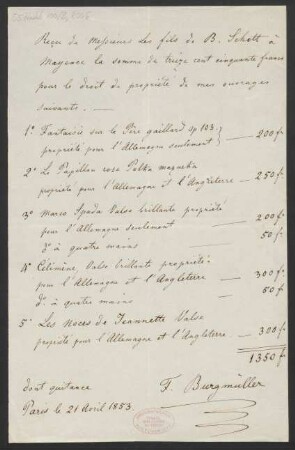 Reçu de Messieurs Les fils de B. Schott à
Mayence la somme de treize cent cinquante francs
pour le droit de propriété de mes ouvrages
suivants. —
1° Fantaisie sur le Père gaillard op 103
propriété pour l'Allemagne seulement } — 200 fr
2° Le Papillon rose Polka mazurka
propriété pour l'Allemagne et l'Angleterre — 250 fr.
3° Marco Spada Valse brillante propriété
pour l'Allemagne seulement — 200 fr
d° à quatre mains 50 fr.
4° Célimène, Valse brillante propriété
pour l'Allemagne et l'Angleterre — 300 fr.
d° à quatre mains — 50 fr
5° Les Noces de Jeannette Valse
propriété pour l'Allemagne et l'Angleterre. — 300 fr.
1350 fr.
dont quitance
F. Burgmüller
Paris le 21 Avril 1853.